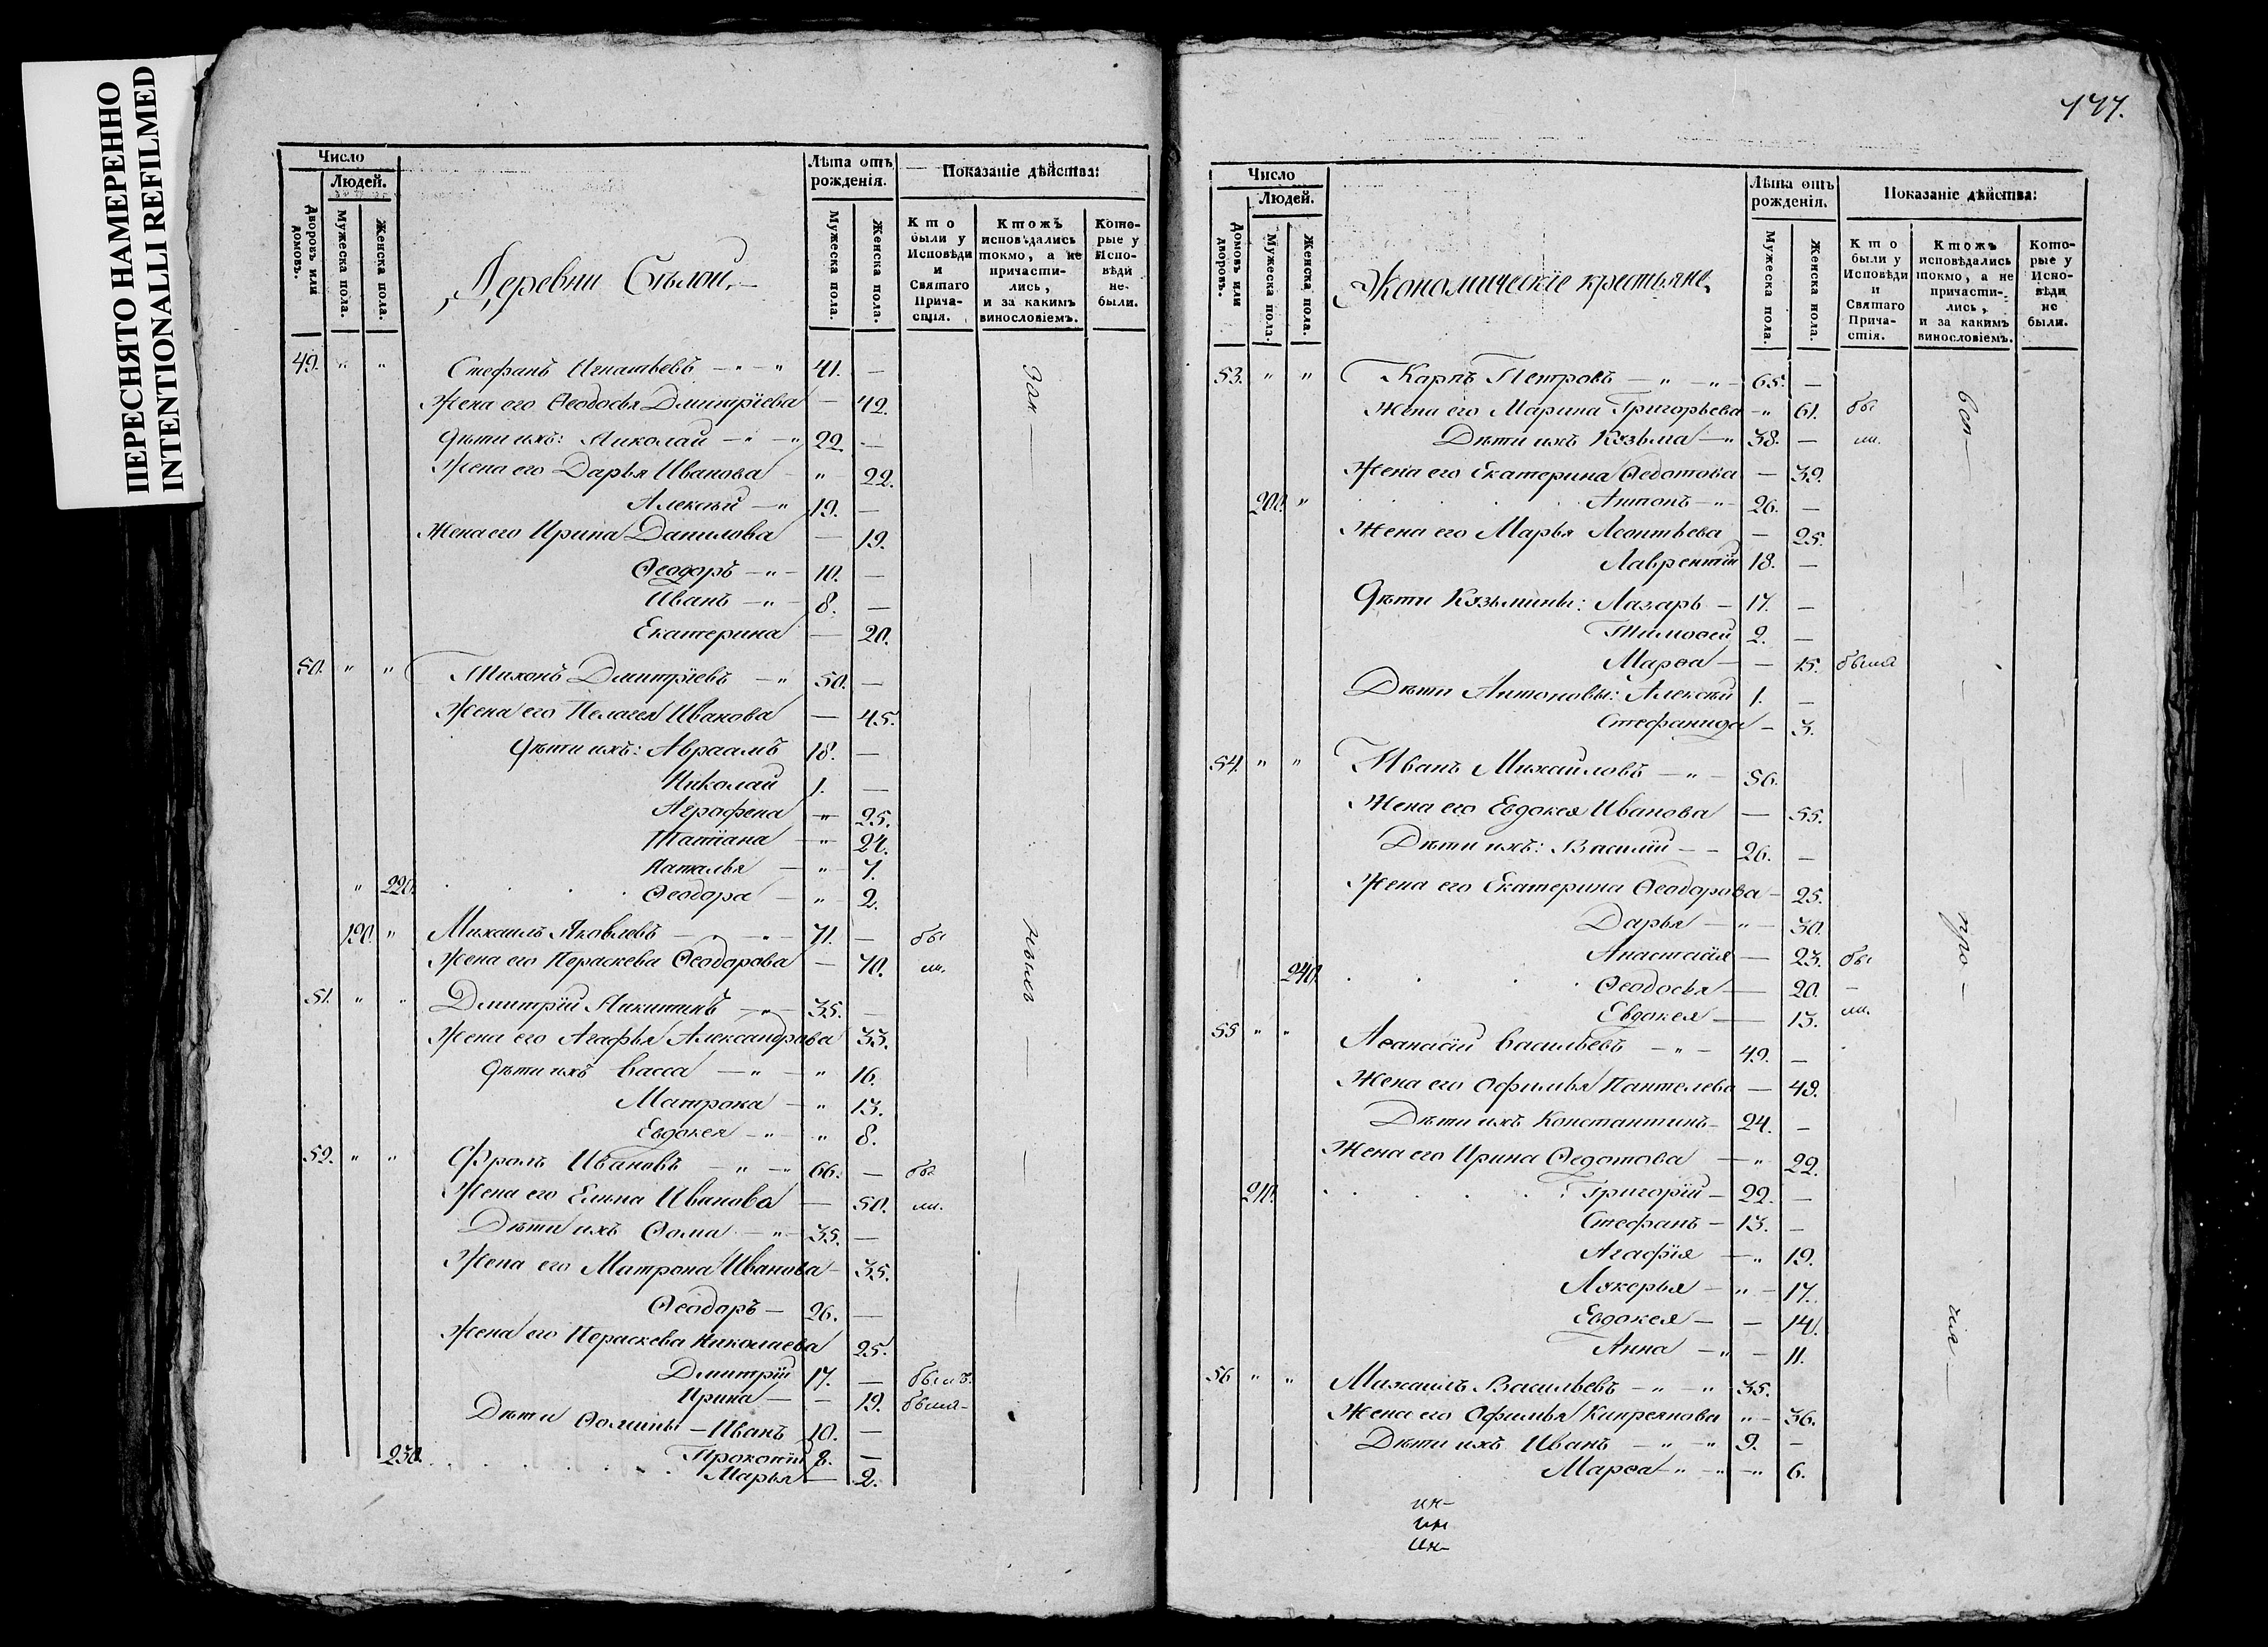 ПЕРЕСНЯТО НАМЕРЕННО
INTENTIONALLI REFILMED
Число
Людей.
Дворовъ или домовъ.
Мужеска пола.
Женска пола.
Лѣта отъ рожденія.
Мужеска пола.
Женска пола.
Показаніе дѣйства:
Кто были у Исповѣди и Святаго Прича-стія.
Ктожъ исповѣдались токмо, а не причасти-лись, и за какимъ винословіемъ.
Кото-рые у Испо-вѣди не-были.
Деревни
49. " " Стефанъ Игнатьевъ — " — " 41. —
Жена его Ѳеодосья Дмитріева — 42.
Дѣти ихъ: Николай — " — " 22. —
Жена его Дарья Иванова " 22.
Алексѣй — " 19. —
Жена его Ирина Данилова — 19.
Ѳеодоръ — " — 10. —
Иванъ — " — 8. —
Екатерина — 20.
50. " " Тихонъ Дмитріевъ — " 50. —
Жена его Пелагея Иванова — 45.
Дѣти ихъ: Авраамъ 18. —
Николай 1. —
Аграфена — " 25.
Татіана — " 24.
Наталья — " 7.
" 220. Ѳеодора — " 2.
190. " Михаилъ Яковлевъ — " — 71. — бы
Жена его Параскева Ѳеодорова — 70. ли.
51. " " Дмитрій Никитинъ — " — 35. —
Жена его Агафья Александрова 33.
Дѣти ихъ Васса — " — " 16.
Матрона — " 13.
Евдокея — " — " 8.
52. " " Фролъ Ивановъ — " — 66. — бы
Жена его Елена Иванова — 50. ли.
Дѣти ихъ Ѳома — " — 35. —
Жена его Матрона Иванова — 35.
Ѳеодоръ — 26. —
Жена его Параскева Николаева 25.
Дмитрій 17. — былъ.
Ирина — — 19. была —
Дѣти Ѳомины — Иванъ 10. —
Прокопій 8. —
230. Марья — 2.
177.
Число
Людей.
Домовъ или дворовъ.
Мужеска пола.
Женска пола.
Лѣта отъ рожденія.
Мужеска пола.
Женска пола.
Показаніе дѣйства:
Кто были у Исповѣди и Святаго Прича-стія.
Ктожъ исповѣдались токмо, а не причасти-лись, и за какимъ винословіемъ.
Кото-рые у Испо-вѣди не были.
Экономическіе крестьяне,
53. " " Карпъ Петровъ — " — " — 65. —
Жена его Марина Григорьева — " 61. бы
Дѣти ихъ Козьма — " 38. — ли.
Жена его Екатерина Ѳедотова — 39.
200. " Антонъ — " — 26. —
Жена его Марья Леонтьева — 25.
Лаврентій 18. —
Дѣти Козьмины: Лазарь — 17. —
Тимоѳей 2. —
Марѳа — — 15. была
Дѣти Антоновы: Алексѣй 1. —
Стефанида — 3.
54. " " Иванъ Михайловъ — " — 56.
Жена его Евдокея Иванова — 55.
Дѣти ихъ: Василій — — 26. —
Жена его Екатерина Ѳеодорова — 25.
Дарья — " — 30.
Анастасія — 23. бы
240. Ѳеодосья — 20. —
Евдокея — 13. ли.
55 " " Аѳанасій Васильевъ — " — 49. —
Жена его Офимья Пантелева — 49.
Дѣти ихъ Константинъ — 24. —
Жена его Ирина Ѳедотова — " 22.
210. Григорій — 22. —
Стефанъ — 13. —
Агафія — " 19.
Лукерья — " — 17.
Евдокея — — 14.
Анна — " — 11.
56 " " Михаилъ Васильевъ — " — " 35.
Жена его Офимья Кипреянова " — 36.
Дѣти ихъ Иванъ — " — " 9. —
Марѳа — " — " — " 6.